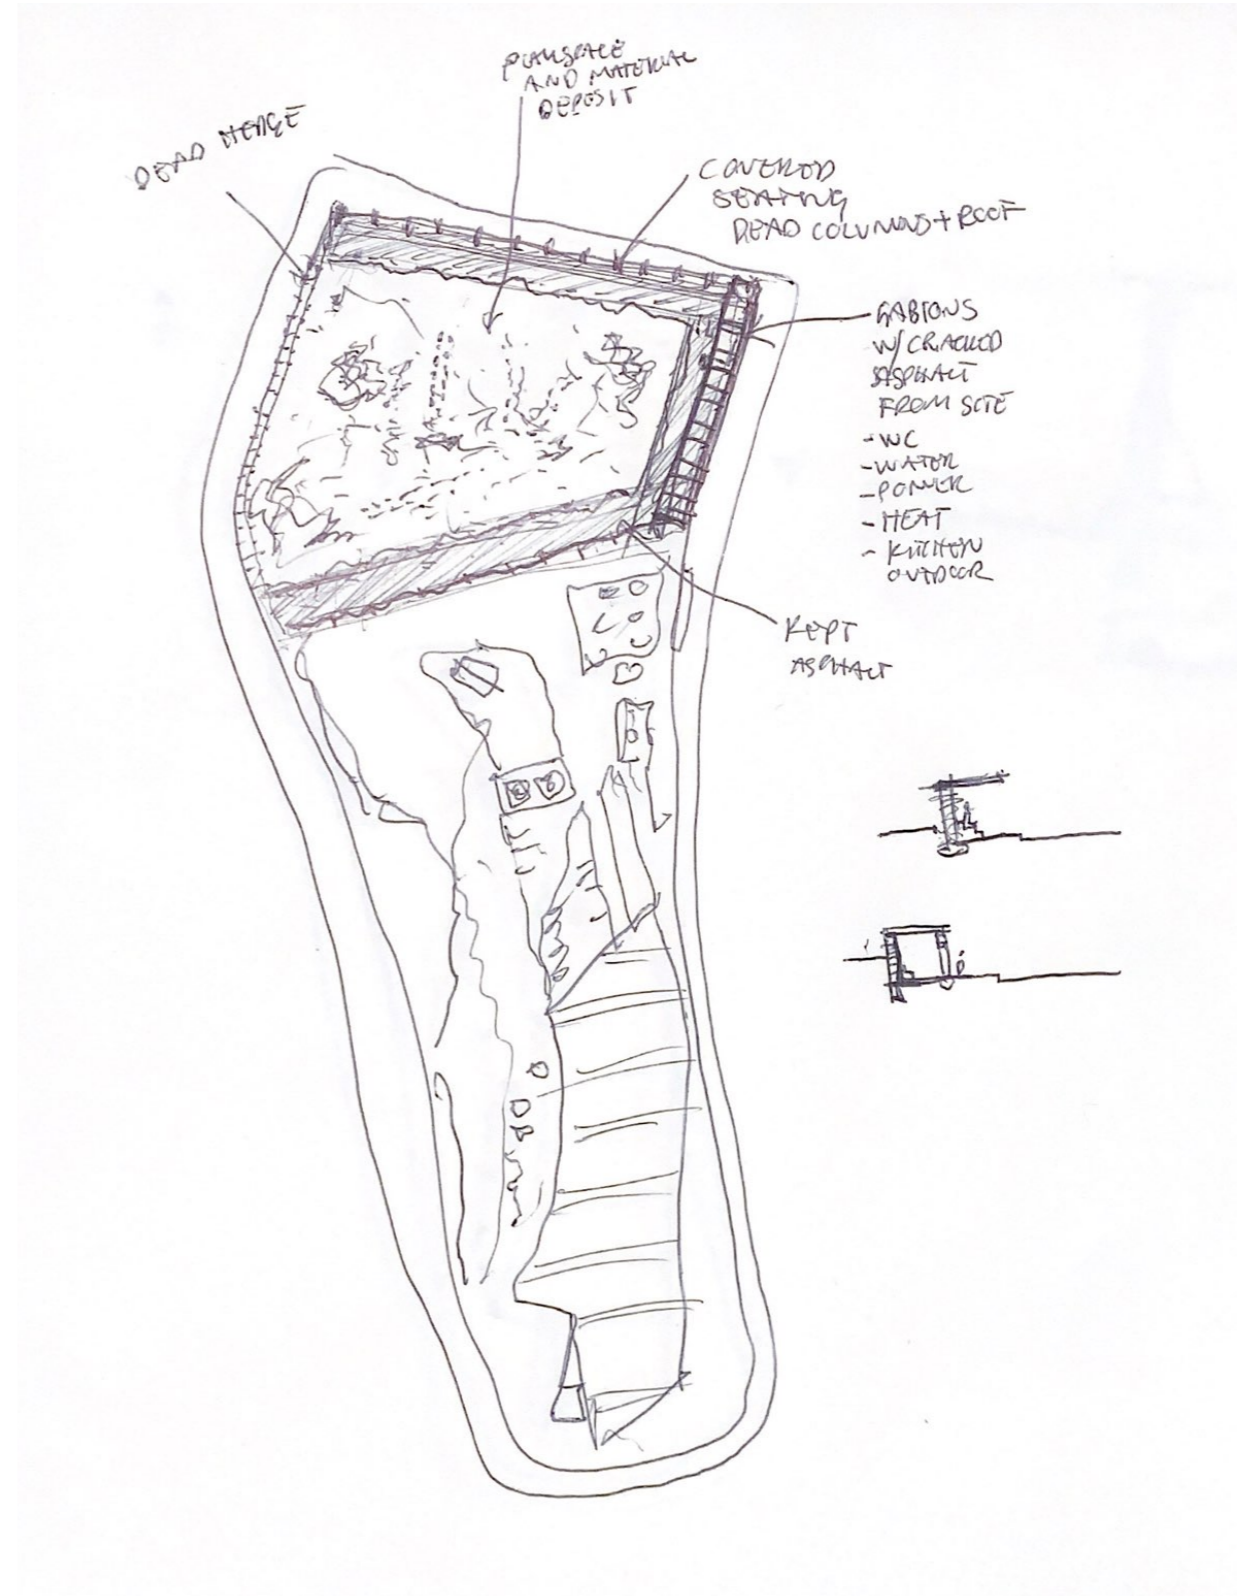 DEAD HEDGE
PLAYSPACE
AND MATERIAL
DEPOSIT
COVERED
SEATING
DEAD COLUMNS + ROOF
GABIONS
W/ CRACKED
ASPHALT
FROM SITE
- WC
- WATER
- POWER
- HEAT
- KITCHEN
OUTDOOR
KEPT
ASPHALT